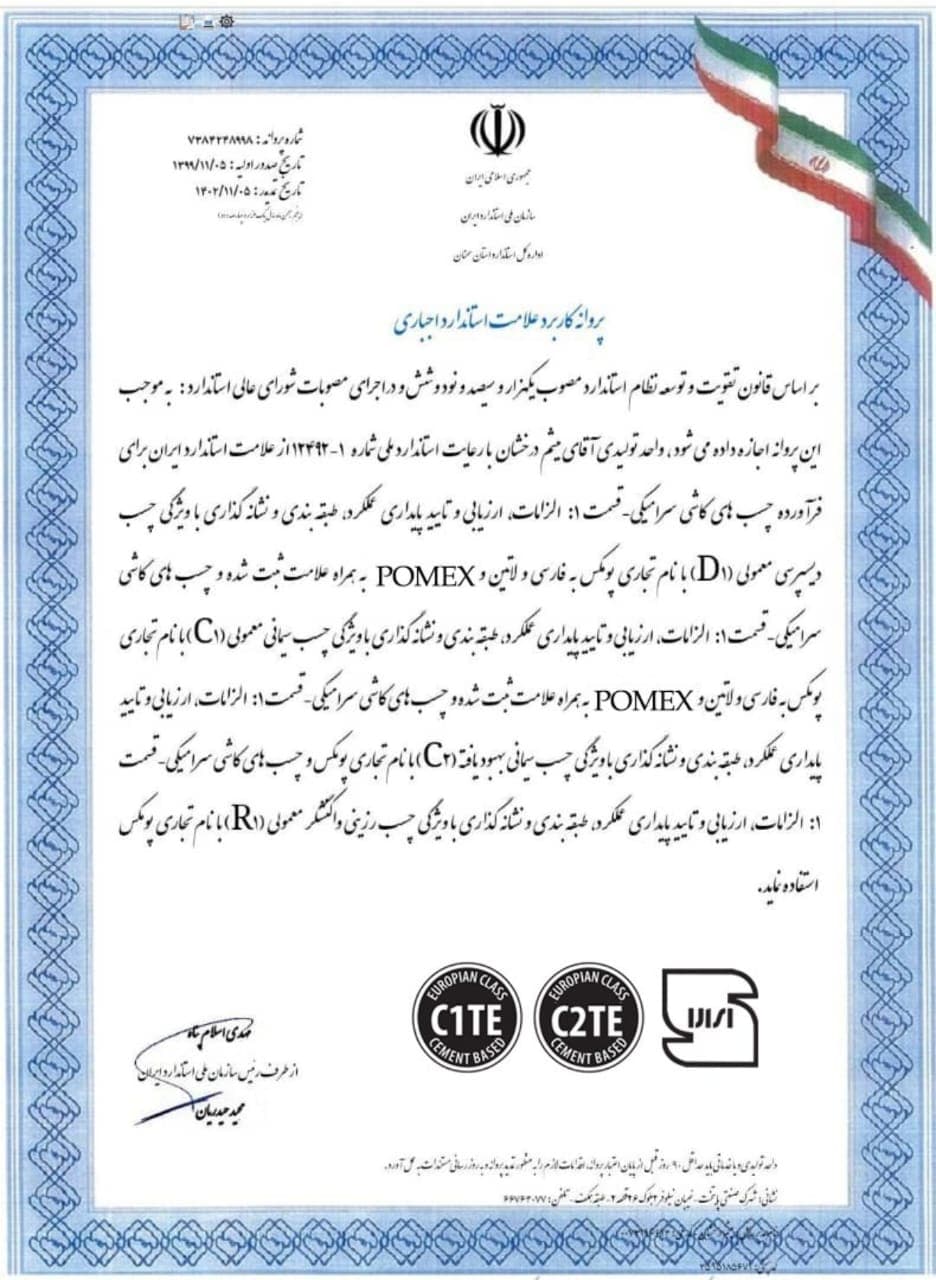 شماره پروانه: ۷۳۸۴۲۴۸۹۹۸
تاریخ صدور اولیه: ۱۳۹۹/۱۱/۰۵
تاریخ تمدید: ۱۴۰۲/۱۱/۰۵
جمهوری اسلامی ایران
سازمان ملی استاندارد ایران
اداره کل استاندارد استان سمنان
پروانه کاربرد علامت استاندارد اجباری
بر اساس قانون تقویت و توسعه نظام استاندارد مصوب یکهزار و سیصد و نود و شش و در اجرای مصوبات شورای عالی استاندارد: به موجب
این پروانه اجازه داده می شود، واحد تولیدی آقای میثم درخشان با رعایت استاندارد ملی شماره ۱-۱۲۴۹۲ از علامت استاندارد ایران برای
فرآورده چسب های کاشی سرامیکی-قسمت ۱: الزامات، ارزیابی و تایید پایداری عملکرد، طبقه بندی و نشانه گذاری با ویژگی چسب
دیسپرسی معمولی (D۱) با نام تجاری پومکس به فارسی و لاتین و POMEX به همراه علامت ثبت شده و چسب های کاشی
سرامیکی-قسمت ۱: الزامات، ارزیابی و تایید پایداری عملکرد، طبقه بندی و نشانه گذاری با ویژگی چسب سیمانی معمولی (C۱) با نام تجاری
پومکس به فارسی و لاتین و POMEX به همراه علامت ثبت شده و چسب های کاشی سرامیکی-قسمت ۱: الزامات، ارزیابی و تایید
پایداری عملکرد، طبقه بندی و نشانه گذاری با ویژگی چسب سیمانی بهبود یافته (C۲) با نام تجاری پومکس و چسب های کاشی سرامیکی-قسمت
۱: الزامات، ارزیابی و تایید پایداری عملکرد، طبقه بندی و نشانه گذاری با ویژگی چسب رزینی واکنشگر معمولی (R۱) با نام تجاری پومکس
استفاده نماید.
EUROPIAN CLASS
C1TE
CEMENT BASED
EUROPIAN CLASS
C2TE
CEMENT BASED
ایران
مهدی اسلام پناه
از طرف رئیس سازمان ملی استاندارد ایران
مجید حیدریان
واحد تولیدی و یا خدماتی باید حداقل ۹۰ روز قبل از پایان اعتبار پروانه، اقدامات لازم را به منظور تمدید پروانه و به روز رسانی مستندات به عمل آورد.
نشانی: شهرک صنعتی پایتخت - خیابان نیلوفر